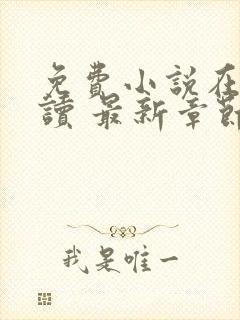 免費小説在
讀 最新章節
我是唯一